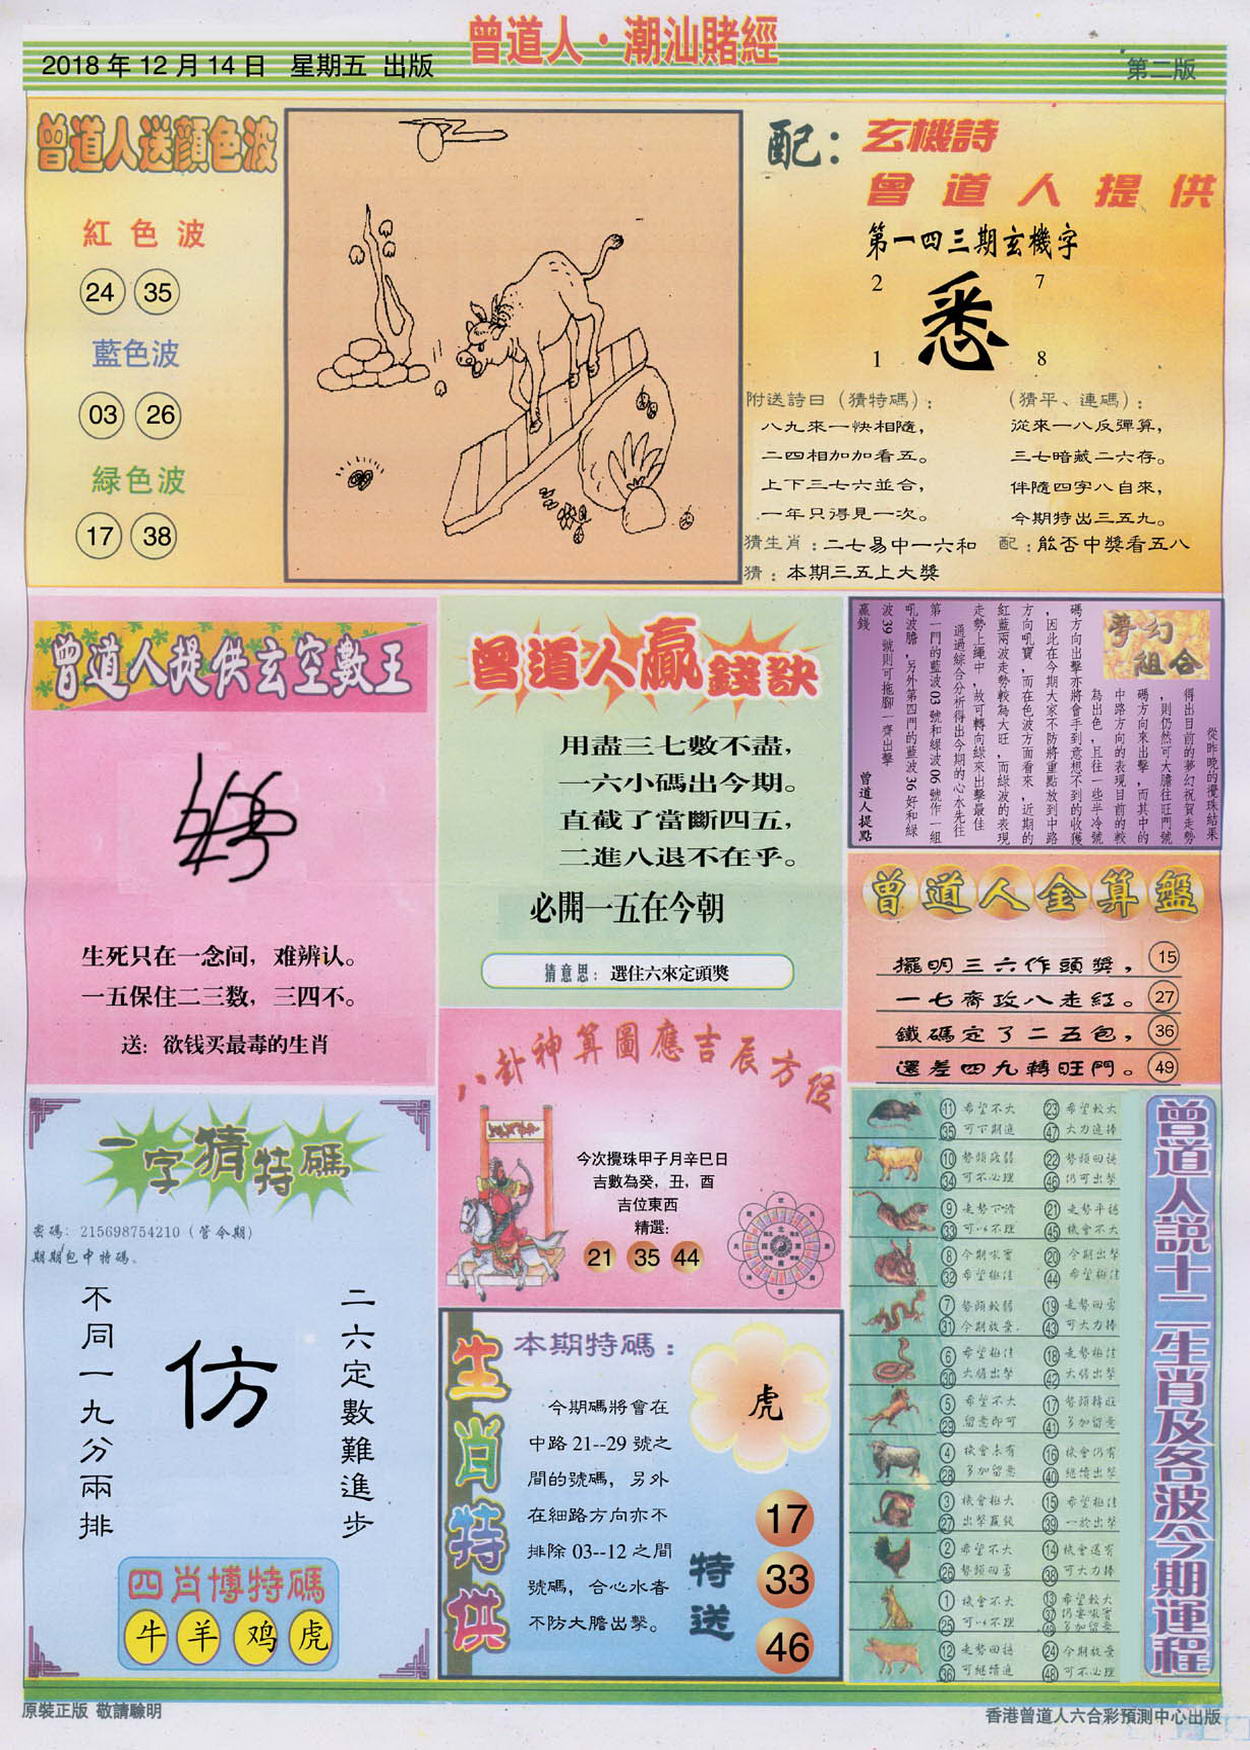 曾道人·潮汕賭經
2018 年 12 月 14 日 星期五 出版
第二版
曾道人送顔色波
紅色波
24 35
藍色波
03 26
緑色波
17 38
配：玄機詩
曾道人提供
第一四三期玄機字
2 7
悉
1 8
附送詩曰（猜特碼）：
八九來一快相隨，
二四相加加看五。
上下三七六並合，
一年只得見一次。
（猜平、連碼）：
從來一八反彈算，
三七暗藏二六存。
伴隨四字八自來，
今期特出三五九。
猜生肖：二七易中一六和 配：能否中獎看五八
猜：本期三五上大獎
曾道人提供玄空數王
生死只在一念间，难辨认。
一五保住二三数，三四不。
送：欲钱买最毒的生肖
曾道人贏錢訣
用盡三七數不盡，
一六小碼出今期。
直截了當斷四五，
二進八退不在乎。
必開一五在今朝
猜意思：選住六來定頭獎
夢幻
組合
從昨晚的攪珠結果
得出目前的夢幻祝賀走勢
，則仍然可大膽往旺門號
碼方向來出擊，而其中的
中路方向的表現目前的較
為出色，且往一些半冷號
碼方向出擊亦將會手到意想不到的收獲
，因此在今期大家不防將重點放到中路
方向吼寶，而在色波方面看來，近期的
紅藍兩波走勢較為大旺，而綠波的表現
走勢上繩中，故可轉向綠來出擊最佳
通過綜合分析得出今期的心水先往
第一門的藍波 03 號和綠波 06 號作一組
吼波膽，另外第四門的藍波 36 好和綠
波 39 號則可拖腳一齊出擊
贏錢
曾道人提點
曾道人金算盤
擺明三六作頭獎， 15
一七齊攻八走紅。 27
鐵碼定了二五包， 36
還差四九轉旺門。 49
八卦神算圖應吉辰方位
今次攪珠甲子月辛巳日
吉數為癸，丑，酉
吉位東西
精選：
21 35 44
一字猜特碼
密碼：215698754210（管今期）
期期包中特碼。
不同一九分兩排
仿
二六定數難進步
四肖博特碼
牛 羊 鸡 虎
生肖特供
本期特碼：
虎
今期碼將會在
中路 21--29 號之
間的號碼，另外
在細路方向亦不
排除 03--12 之間
號碼，合心水者
不防大膽出擊。
特送
17
33
46
曾道人説十二生肖及各波今期運程
11 希望不大 23 希望較大
35 可下期進 47 大力進捧
10 勢頭疲弱 22 勢頭回穩
34 可不必理 46 仍可出擊
9 走勢下滑 21 走勢平穩
33 可以不理 45 機會不大
8 今期吼寶 20 今期出擊
32 希望極佳 44 希望極佳
7 勢頭較弱 19 走勢回勇
31 今期放棄. 43 可大力捧
6 希望極佳 18 走勢極佳
30 大膽出擊 42 大膽出擊
5 希望不大 17 勢頭轉旺
29 留意即可 41 多加留意
4 機會未有 16 機會仍有
28 多加留意 40 繼續出擊
3 機會極大 15 希望極佳
27 出擊贏錢 39 一於出擊
2 希望不大 14 機會還有
26 勢頭回勇 38 可大力捧
1 機會不大 13 希望較大
25 可以不理 37 仍要吼寶
49 多加留意
12 走勢回穩 24 今期放棄
36 可繼續進 48 可不必理
原裝正版 敬請驗明
香港曾道人六合彩預測中心出版